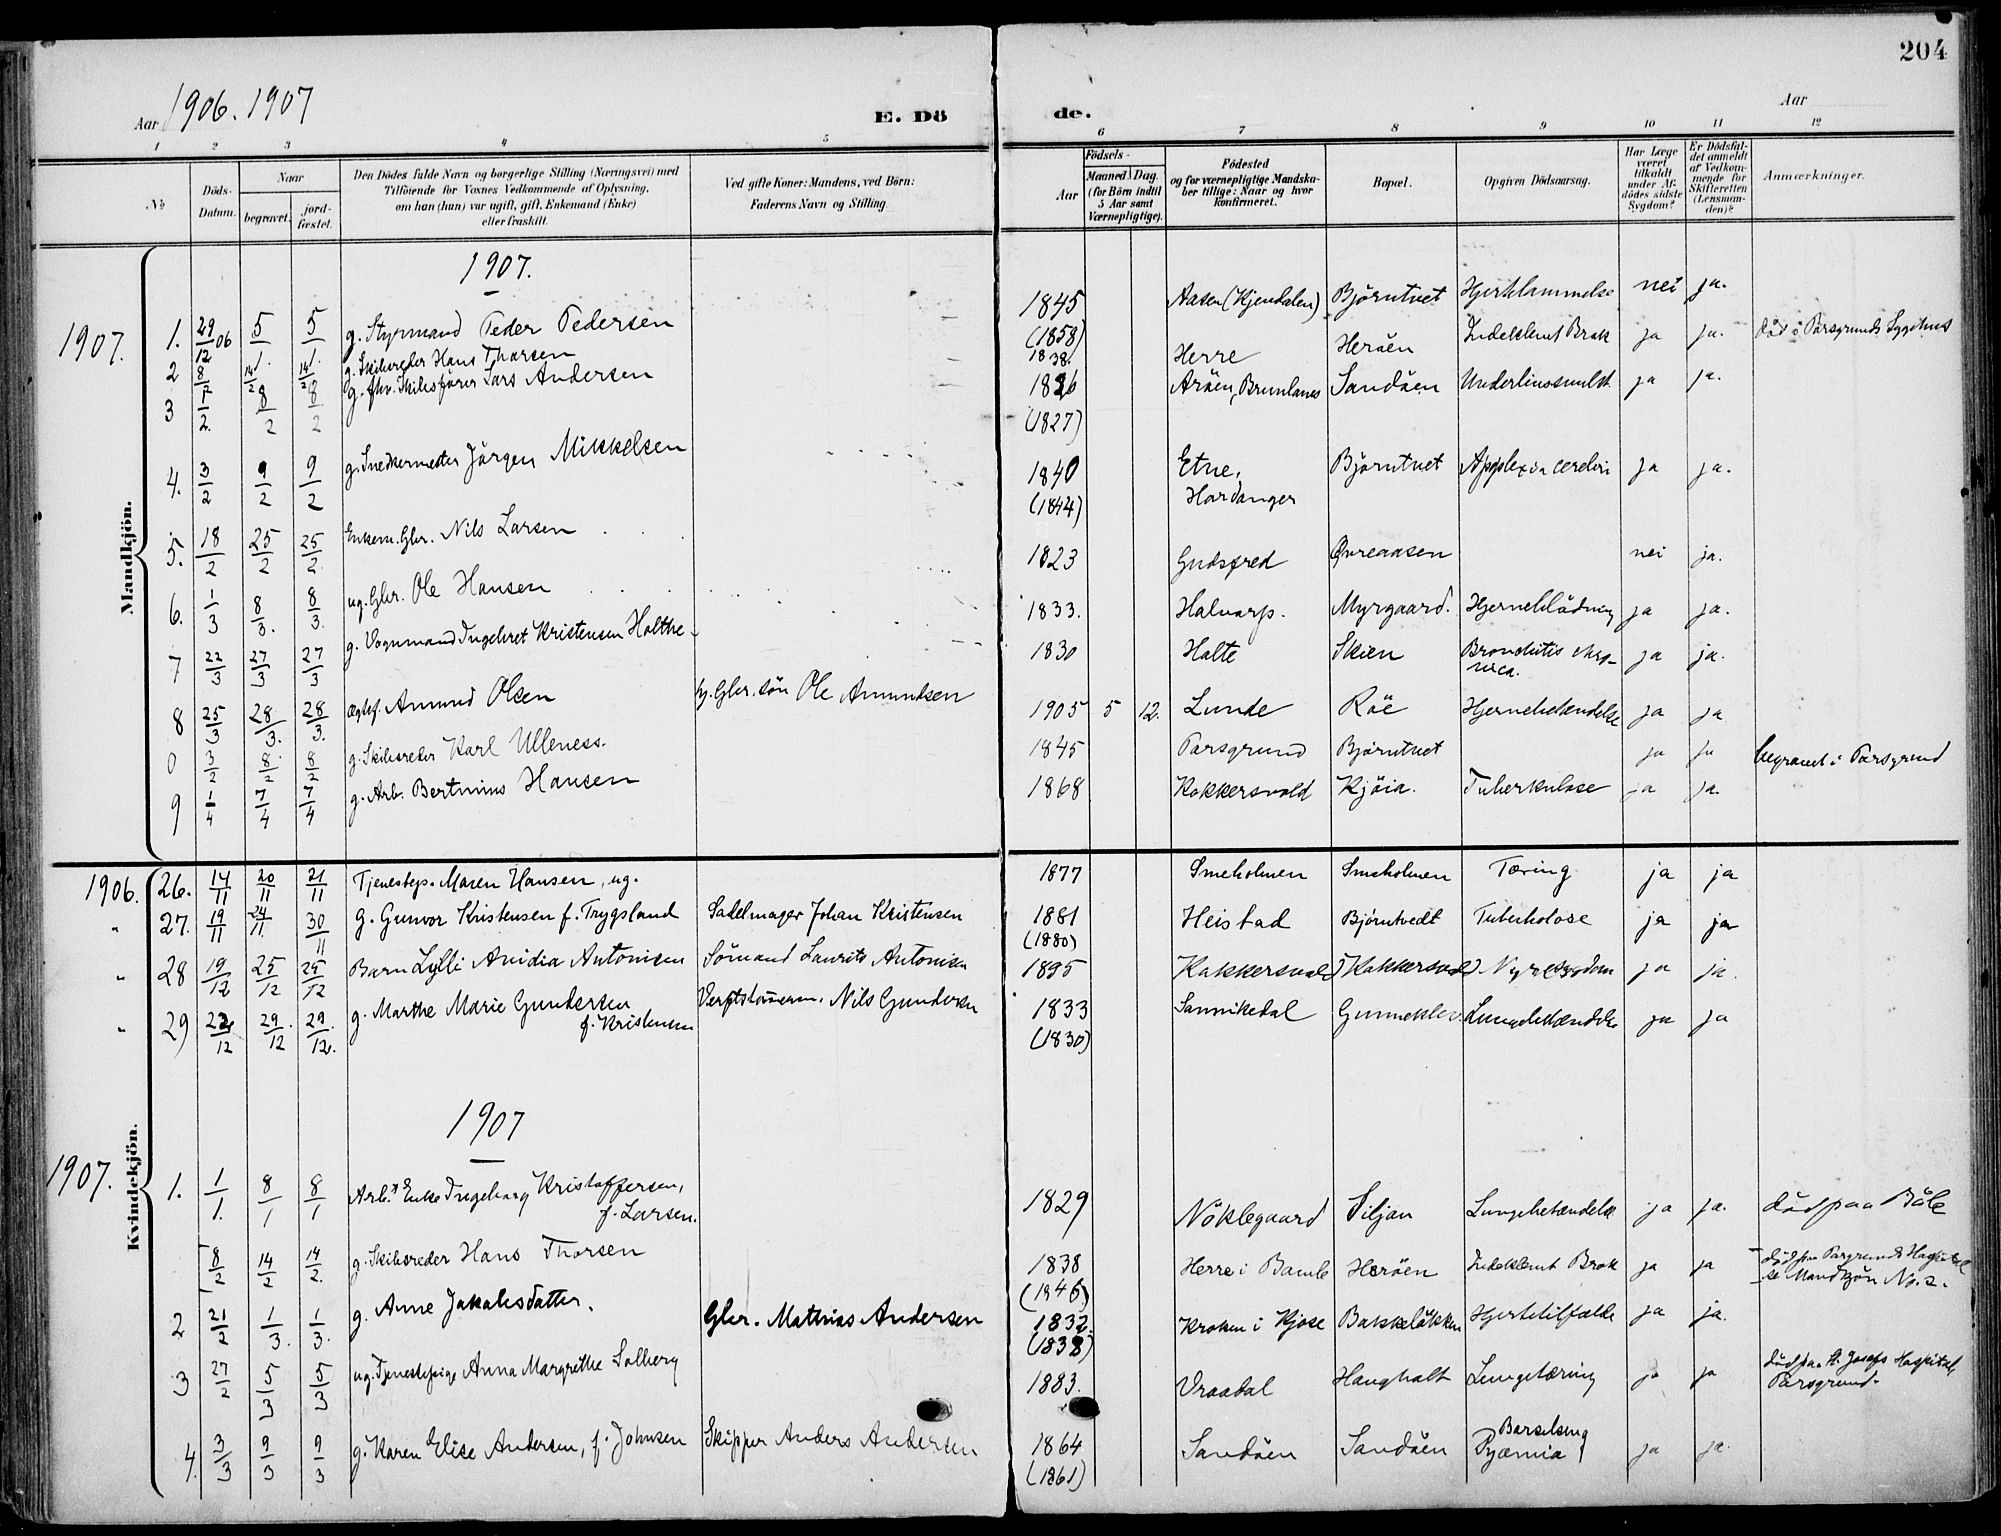 204
Aar 1906. 1907 E. Dö de. Aar
1 2 3 4 5 6 7 8 9 10 11 12
№ Döds-Datum. Naar begravet. jord-fæstet. Den Dödes fulde Navn og borgerlige Stilling (Næringsvei) med Tilföiende for Voxnes Vedkommende af Oplysning, om han (hun) var ugift, gift, Enkemand (Enke) eller fraskilt. Ved gifte Koner: Mandens, ved Börn: Faderens Navn og Stilling Födsels- Aar Maaned Dag. (for Börn indtil 5 Aar samt Værnepligtige). Födested og for værnepligtige Mandskaber tillige: Naar og hvor konfirmeret. Bopæl. Opgiven Dödsaarsag. Har Læge været tilkaldt under Afdödes sidste Sygdom? Er Dödsfaldet anmeldt af Vedkommende for Skifteretten (Lensmanden)? Anmærkninger.
Mandkjön.
1907.
1907. 1. 29/12 06 5/1. 5/1. g. Styrmand Peder Pedersen 1845 (1858) Aasen (Kjendalen) Björntvet Hjertelammelse nei ja.
2 8/2 14/2 14/2 g. Skibsreder Hans Thorsen 1838. Herre Heröen Indeklemt Brok ja ja. död i Porsgrunds Sygehus
3 1/2. 8/2 8/2 g. fhv. Skibsförer Lars Andersen 1826 (1827) Aröen, Brunlanes Sandöen Underlivssvulst ja ja.
4. 3/2 9/2 9/2 g. Snedkermester Jörgen Mikkelsen 1840 (1844) Etne, Hardanger Björntvet Apoplexia cerebri ja ja.
5. 18/2 25/2 25/2. Enkem. Gbr. Nils Larsen 1823 Gudsfred Övreaasen nei ja.
6. 1/3 8/3. 8/3. ug. Gbr. Ole Hansen 1833. Halvarp. Myrgaard. Hjerneblödning ja ja.
7 22/3 27/3 27/3 g. Vognmand Ingebret Kristensen Holthe 1830 Holte Skien Bronchitis chronica. ja ja.
8 25/3 28/3. 28/3. ægtef. Amund Olsen Gbr. sön Ole Amundsen 1905 5 12. Lunde Röe Hjernebetændelse ja ja
0 3/2 8/2 8/2 g. Skibsreder Karl Ulleness. 1845 Porsgrund Björntvet ja ja begravet i Porsgrund
9 1/4 7/4 7/4 g. Arb. Bertinius Hansen 1868 Kokkersvold Kjöia. Tuberkulose ja ja.
Kvindekjön.
1906. 26. 14/11 20/11 21/11 Tjenestep. Maren Hansen, ug. 1877 Smeholmen Smeholmen Tæring ja ja
" 27. 19/11 24/11. 30/11 g. Gunvor Kristensen f. Trygsland Sadelmager Johan Kristensen 1881 (1880) Heistad Björntvedt Tuberkolose ja ja
" 28 19/12 25/12 25/12 Barn Lylli Avidia Antonisen Sömand Laurits Antonisen 1895 Kokkersvold Kokkersvold Nyresygdom ja ja.
" 29 22/12 29/12 29/12. g. Marthe Marie Gundersen f. Kristensen Verftstömerm. Nils Gundersen 1833 (1830) Sannikedal Gunneklev. Lungebetændelse ja ja
1907
1907. 1. 1/1. 8/1 8/1 Arb.s Enke Ingeborg Kristoffersen, f. Larsen. 1829 Nöklegaard Siljan Lungebetændelse ja ja. död paa Böle
8/2 14/2 14/2. g. Skibsreder Hans Thorsen 1838 (1846) Herre i Bamle Heröen Indeklemt Brok ja ja död paa Porsgrunds Hospital se Mandkjön No. 2.
2 21/2 1/3. 1/3. g. Anne Jakobsdatter. Gbr. Mathias Andersen 1832 (1838) Kroken i Kjose Bakkelökken Hjertetilfælde ja ja.
3 27/2 5/3 5/3 ug. Tjenestepige Anna Margrethe Solberg 1883. Vraadal Haugholt Lungetæring ja ja död paa St. Josefs Hospital Porsgrund.
4. 3/3 9/3 9/3 g. Karen Elise Andersen, f. Johnsen Skipper Anders Andersen 1864 (1861) Sandöen Sandöen Barselseng Pyæmia ja ja.